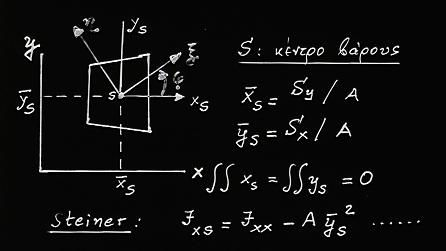 y
η
y_S
ξ
φ_0
x_S
S
ȳ_S
x̄_S
x
S: κέντρο βάρους
x̄_S = S_y / A
ȳ_S = S_x / A
∬ x_S = ∬ y_S = 0
Steiner: J_xS = J_xx - A ȳ_S² ......